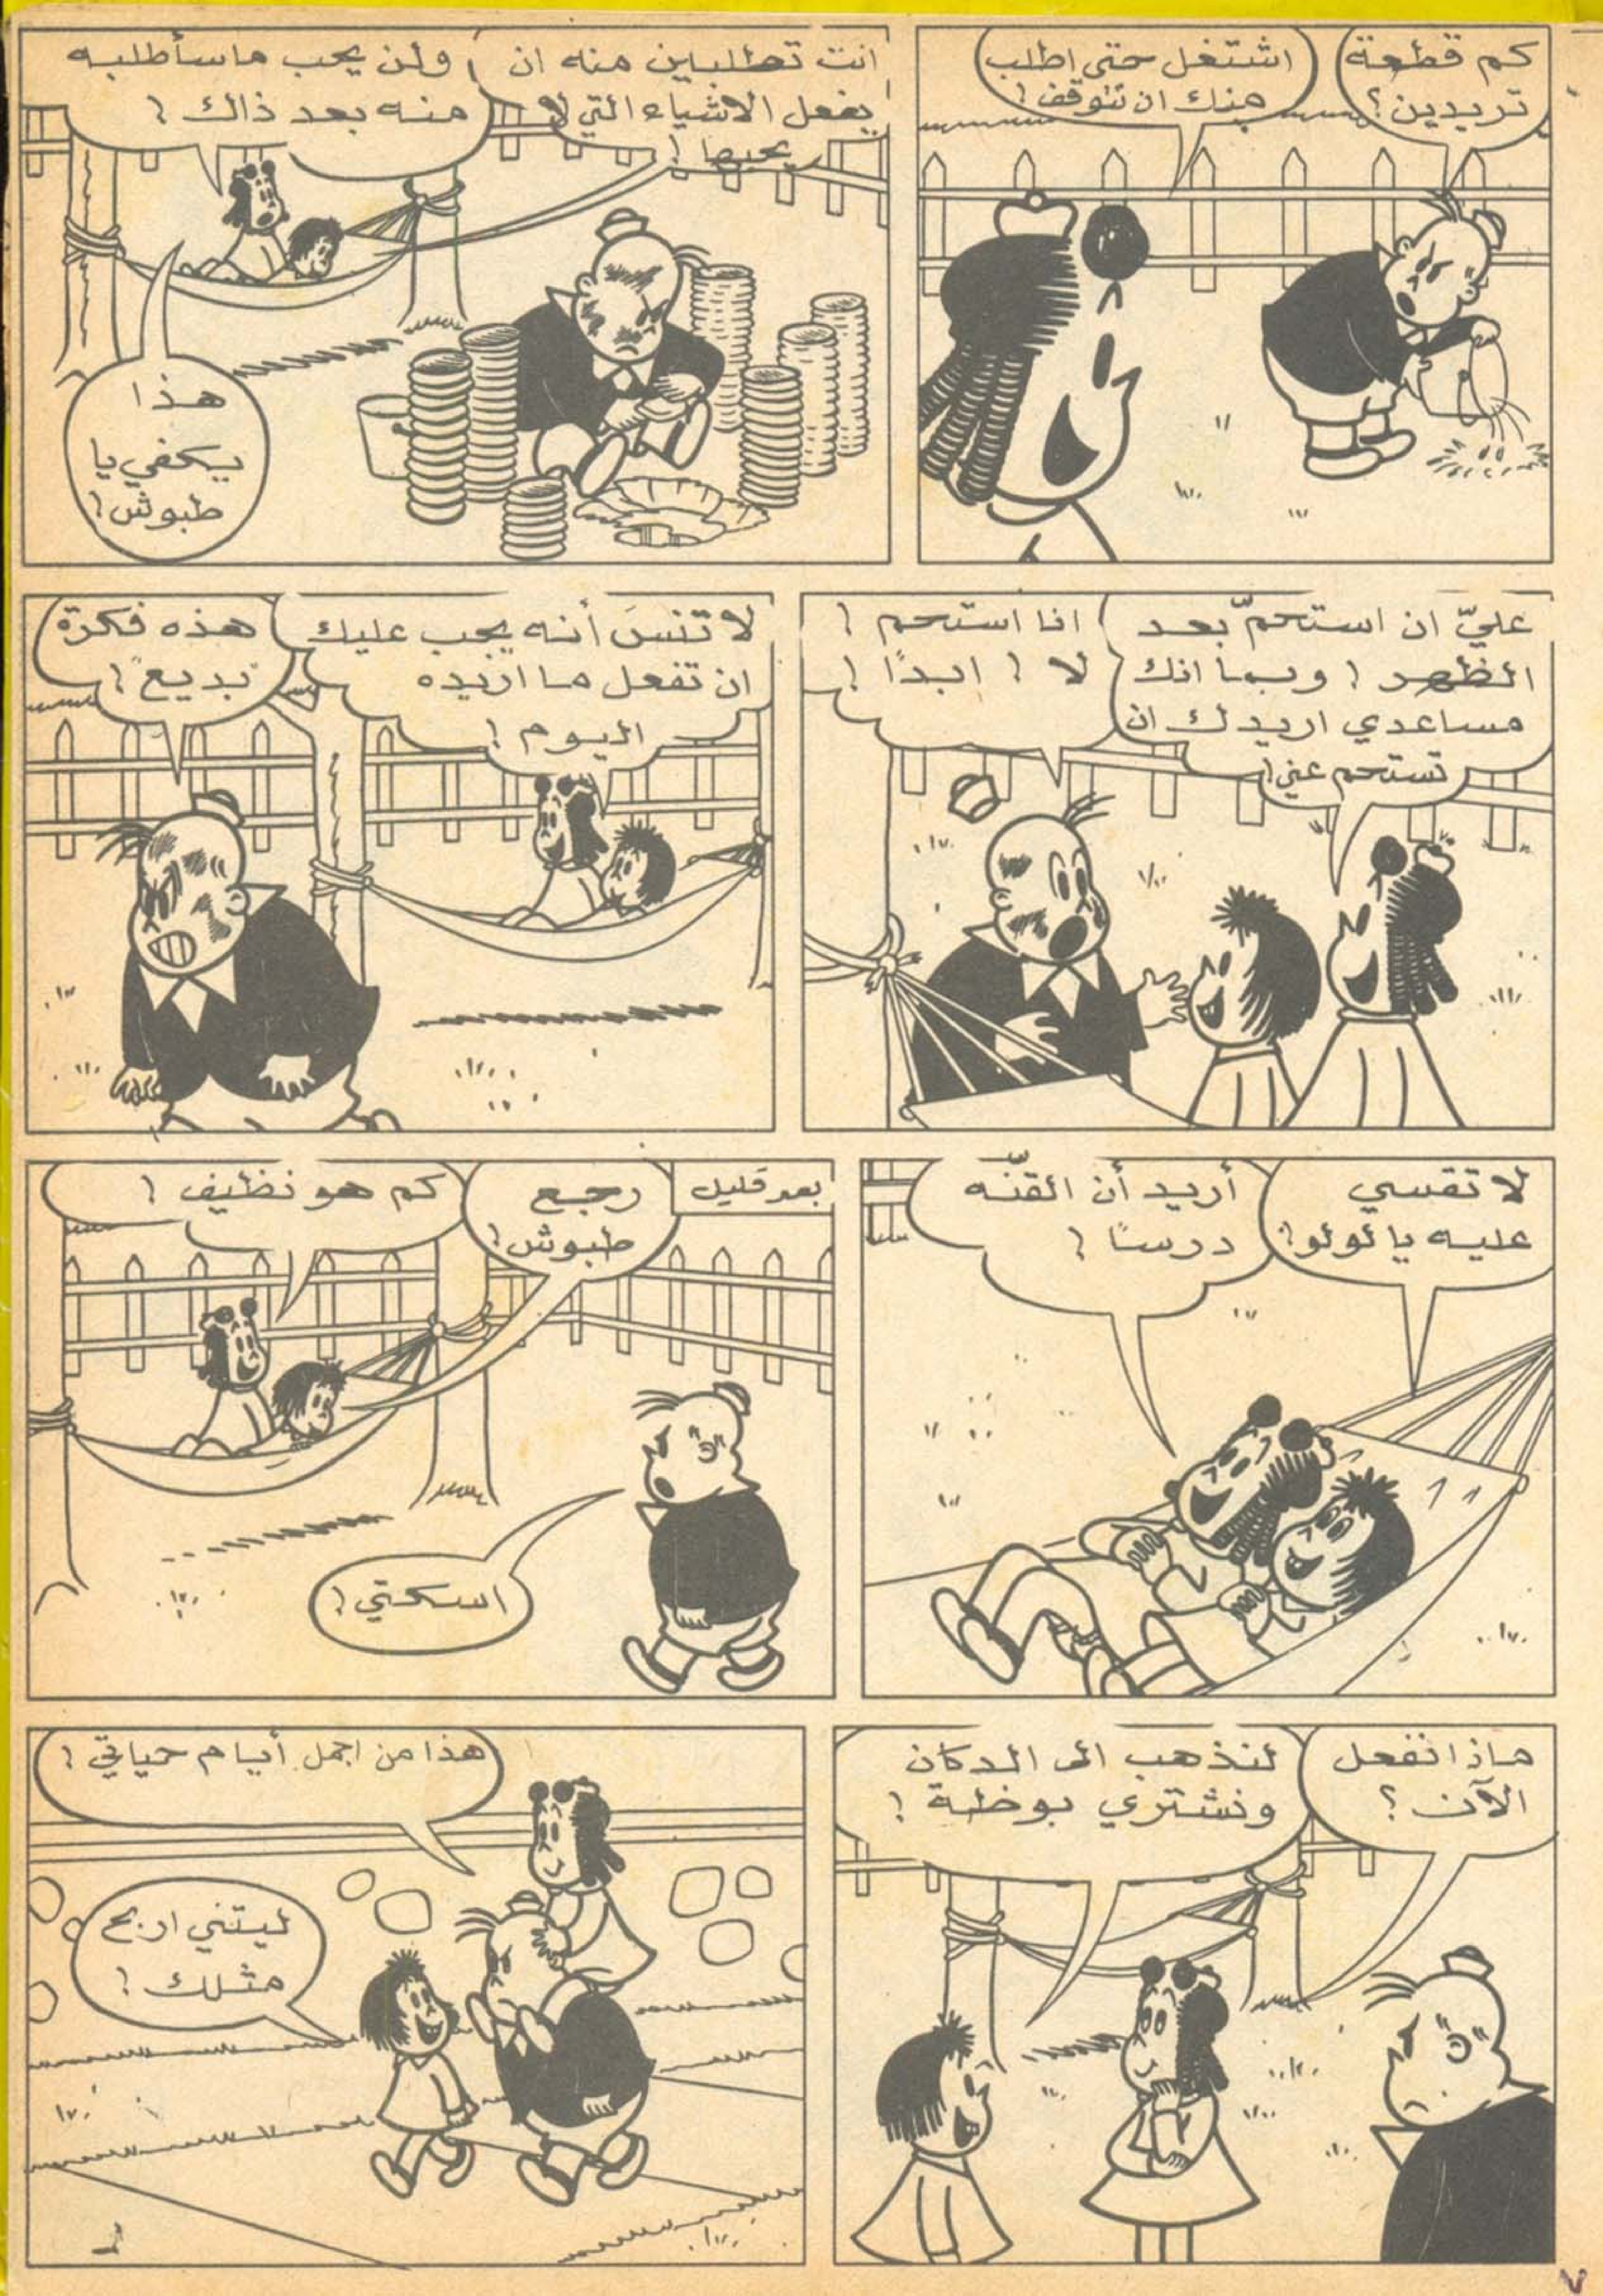 كم قطعة
تريدين؟
اشتغل حتى اطلب
منك ان تتوقف!
انت تطلبين منه ان
يفعل الاشياء التي لا
يحبها!
ولن يحب ماسأطلبه
منه بعد ذالك!
هذا
يكفي يا
طبوش!
عليّ ان استحمّ بعد
الظهر! وبما انك
مساعدي اريدك ان
تستحم عني!
انا استحم!
لا! ابدًا!
لا تنسَ أنه يجب عليك
ان تفعل ما اريده
اليوم!
هذه فكرة
"بديع"!
لا تقسي
عليه يا لولو!
أريد أن القّنه
درسًا!
بعد قليل
رجع
طبوش!
كم هو نظيف!
اسكتي!
ماذا نفعل
الآن؟
لنذهب الى الدكان
ونشتري بوظة!
هذا من اجمل أيام حياتي!
ليتني اربح
مثلك!
٧